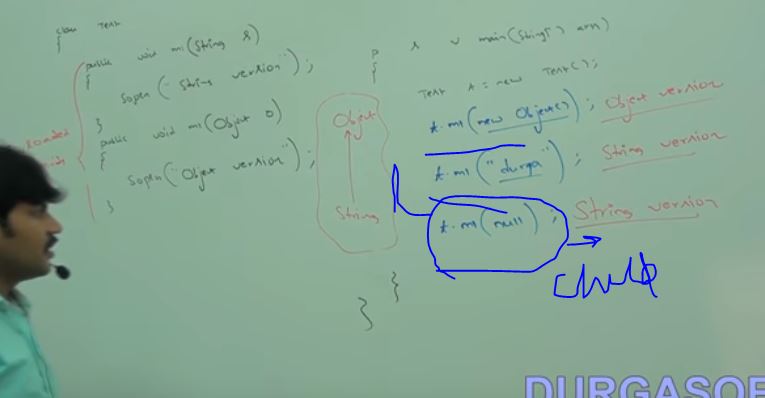 class Test
{
public void m1(String s)
{
sopln("String version");
}
public void m1(Object o)
{
sopln("Object version");
}
Object
String
p s v main(String[] args)
{
Test t = new Test();
t.m1(new Object()); Object version
t.m1("durga"); String version
t.m1(null); String version
}
}
DURGASOF